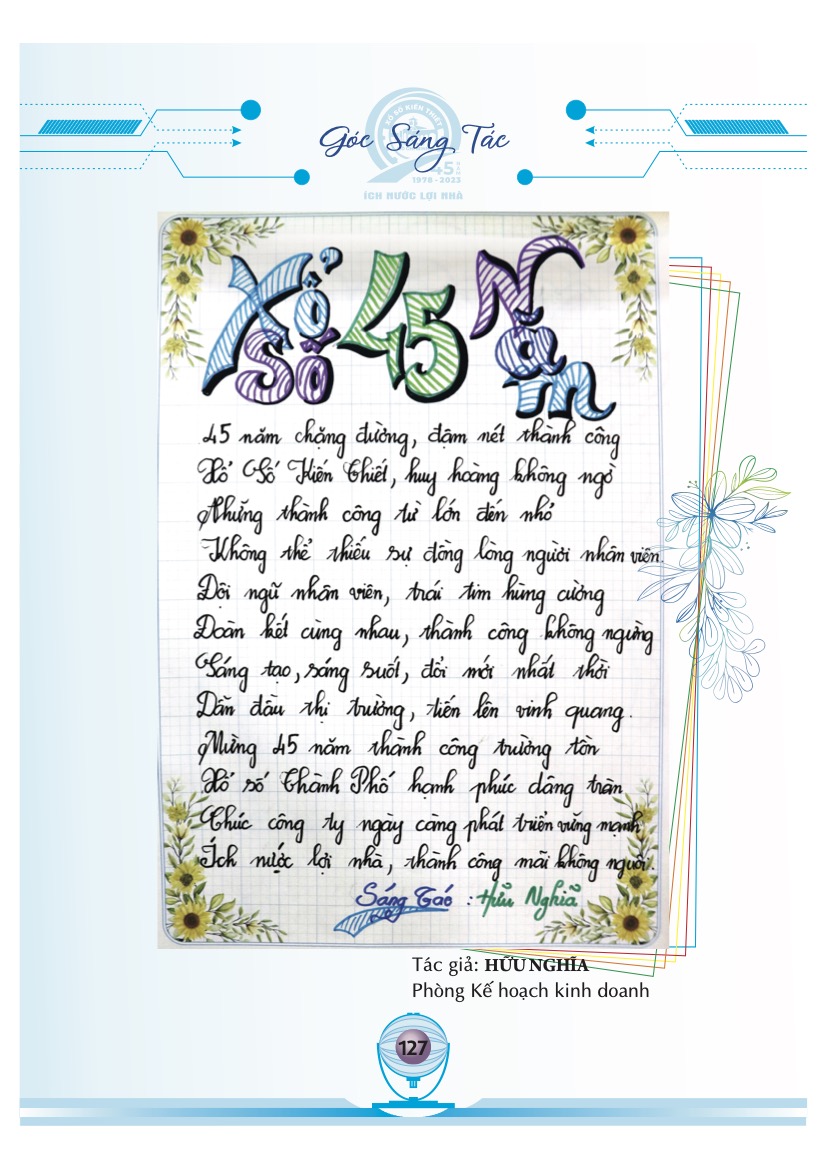 Góc Sáng Tác
XỔ SỐ KIẾN THIẾT
45 NĂM
1978 - 2023
ÍCH NƯỚC LỢI NHÀ
Xổ Số 45 Năm
45 năm chặng đường, đậm nét thành công
Xổ Số Kiến Thiết, huy hoàng không ngờ
Những thành công từ lớn đến nhỏ
Không thể thiếu sự đồng lòng người nhân viên.
Đội ngũ nhân viên, trái tim hùng cường
Đoàn kết cùng nhau, thành công không ngừng
Sáng tạo, sáng suốt, đổi mới nhất thời
Dẫn đầu thị trường, tiến lên vinh quang.
Mừng 45 năm thành công trường tồn
Xổ số Thành Phố hạnh phúc dâng tràn
Chúc công ty ngày càng phát triển vững mạnh
Ích nước lợi nhà, thành công mãi không nguôi.
Sáng Táć : Hữu Nghĩa
Tác giả: HỮU NGHĨA
Phòng Kế hoạch kinh doanh
127